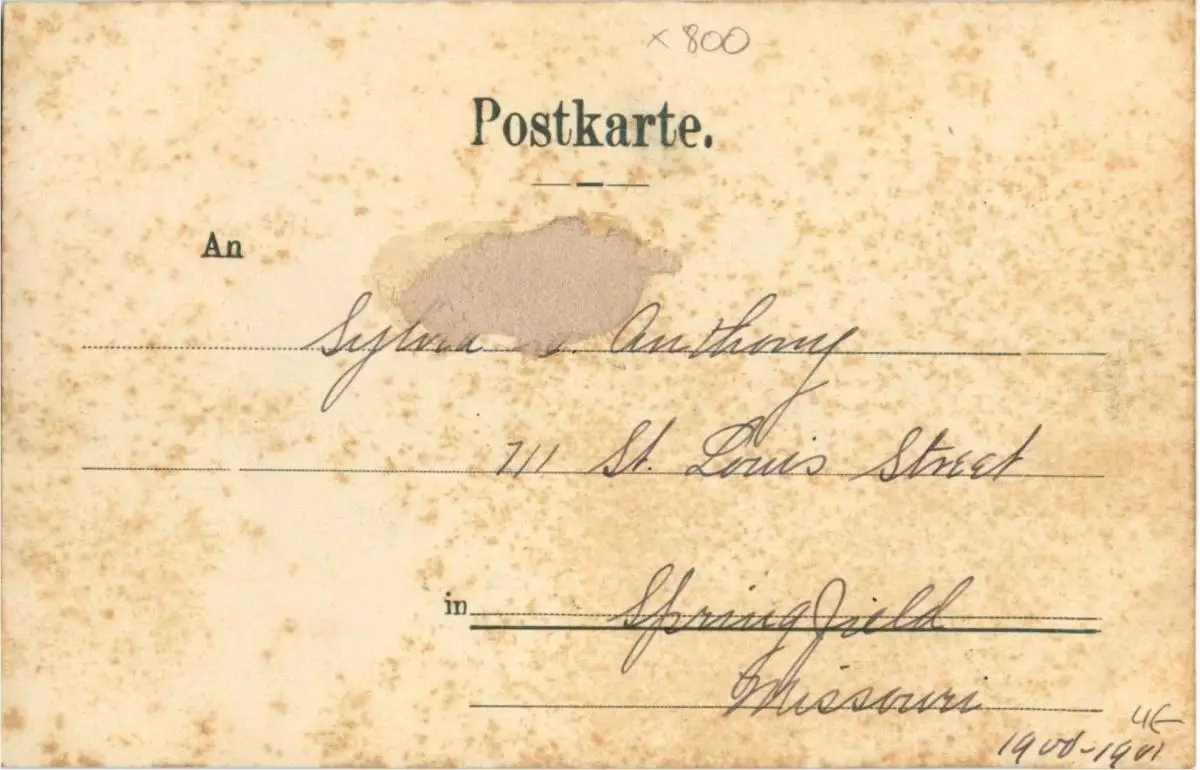 × 800
Postkarte.
An
Sylvia Anthony
711 St. Louis Street
in Springfield
Missouri
4E
1900-1901